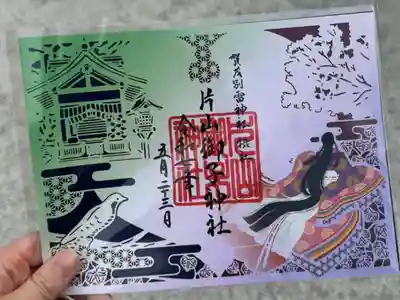 賀茂別雷神社摂社
片山御子神社
令和七年
五月二十三日